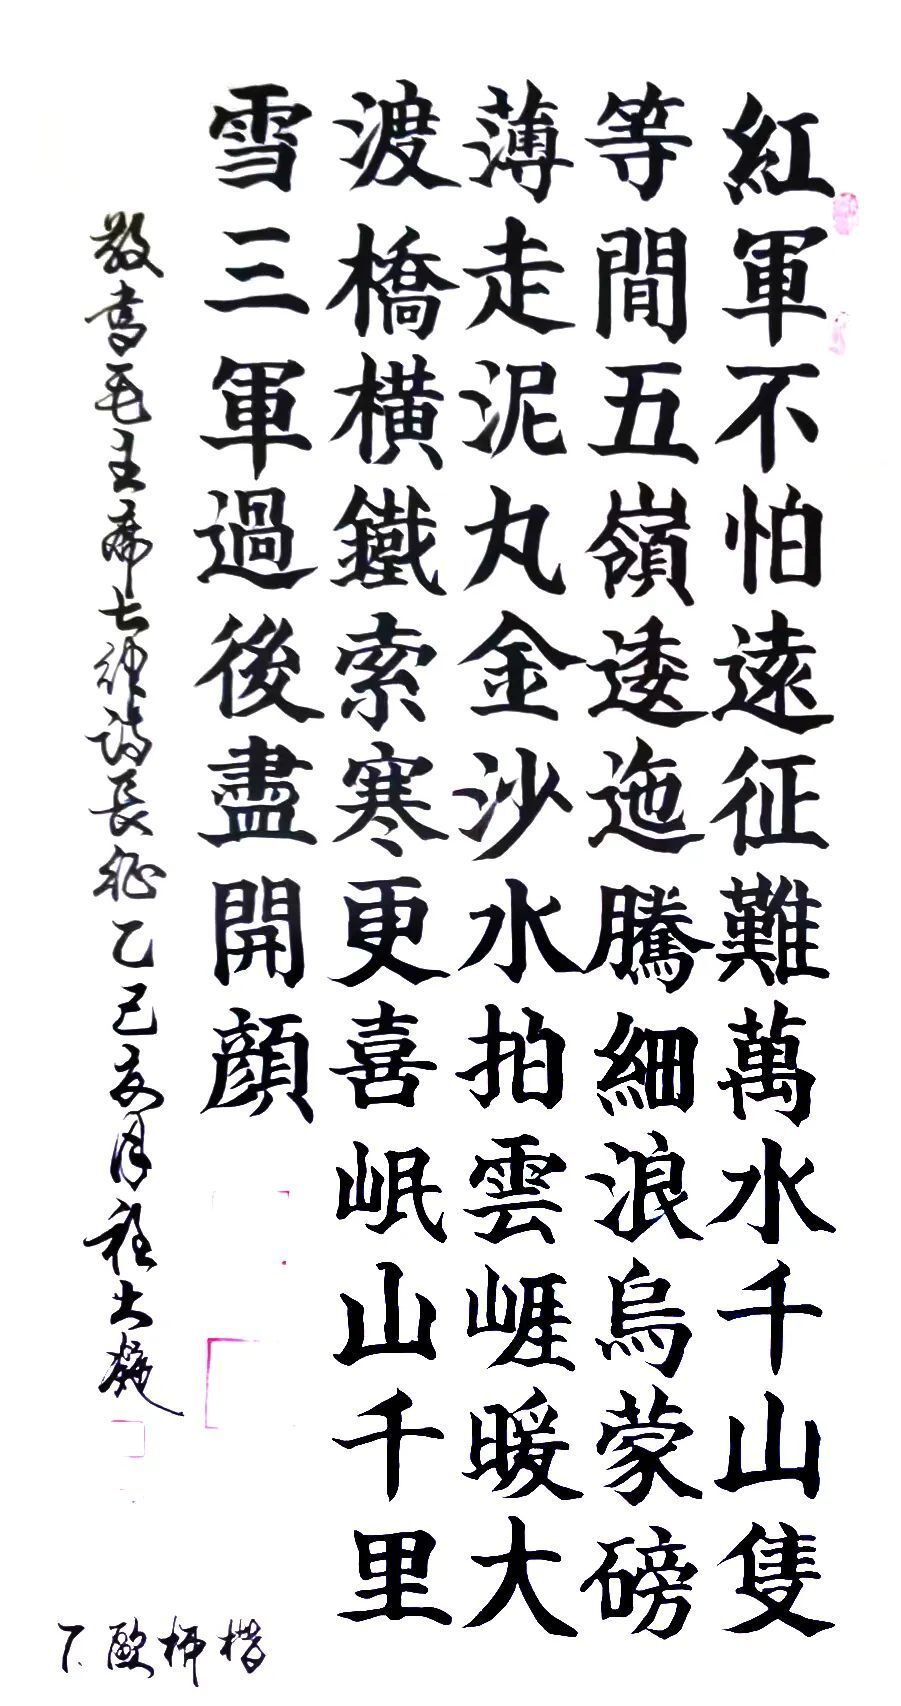 紅軍不怕遠征難萬水千山隻
等間五嶺逶迤騰細浪烏蒙磅
薄走泥丸金沙水拍雲崕暖大
渡橋橫鐵索寒更喜岷山千里
雪三軍過後盡開顔
敬書毛主席七律詩長征乙巳亥月程大
7.歐柳楷